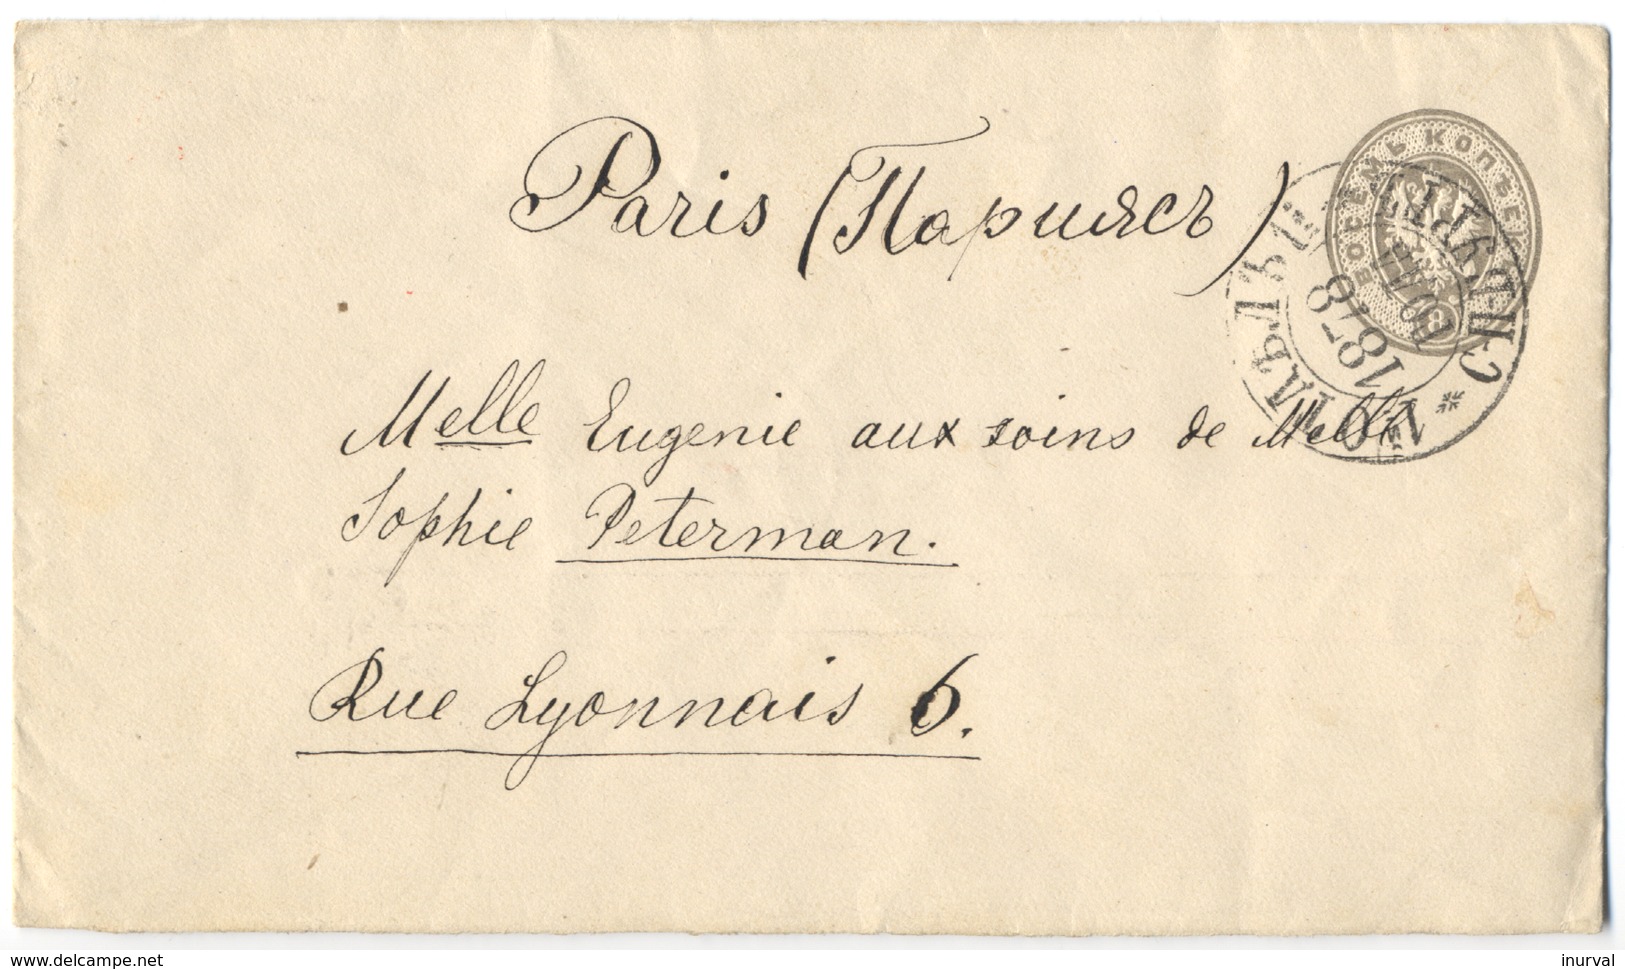 Paris (Парижсъ)
ВОСЕМЬ КОПѢЕК
8
1878
С.ПЕТЕРБ
Melle Eugenie aux soins de Melle
Sophie Peterman.
Rue Lyonnais 6.
delcampe.net
inurval